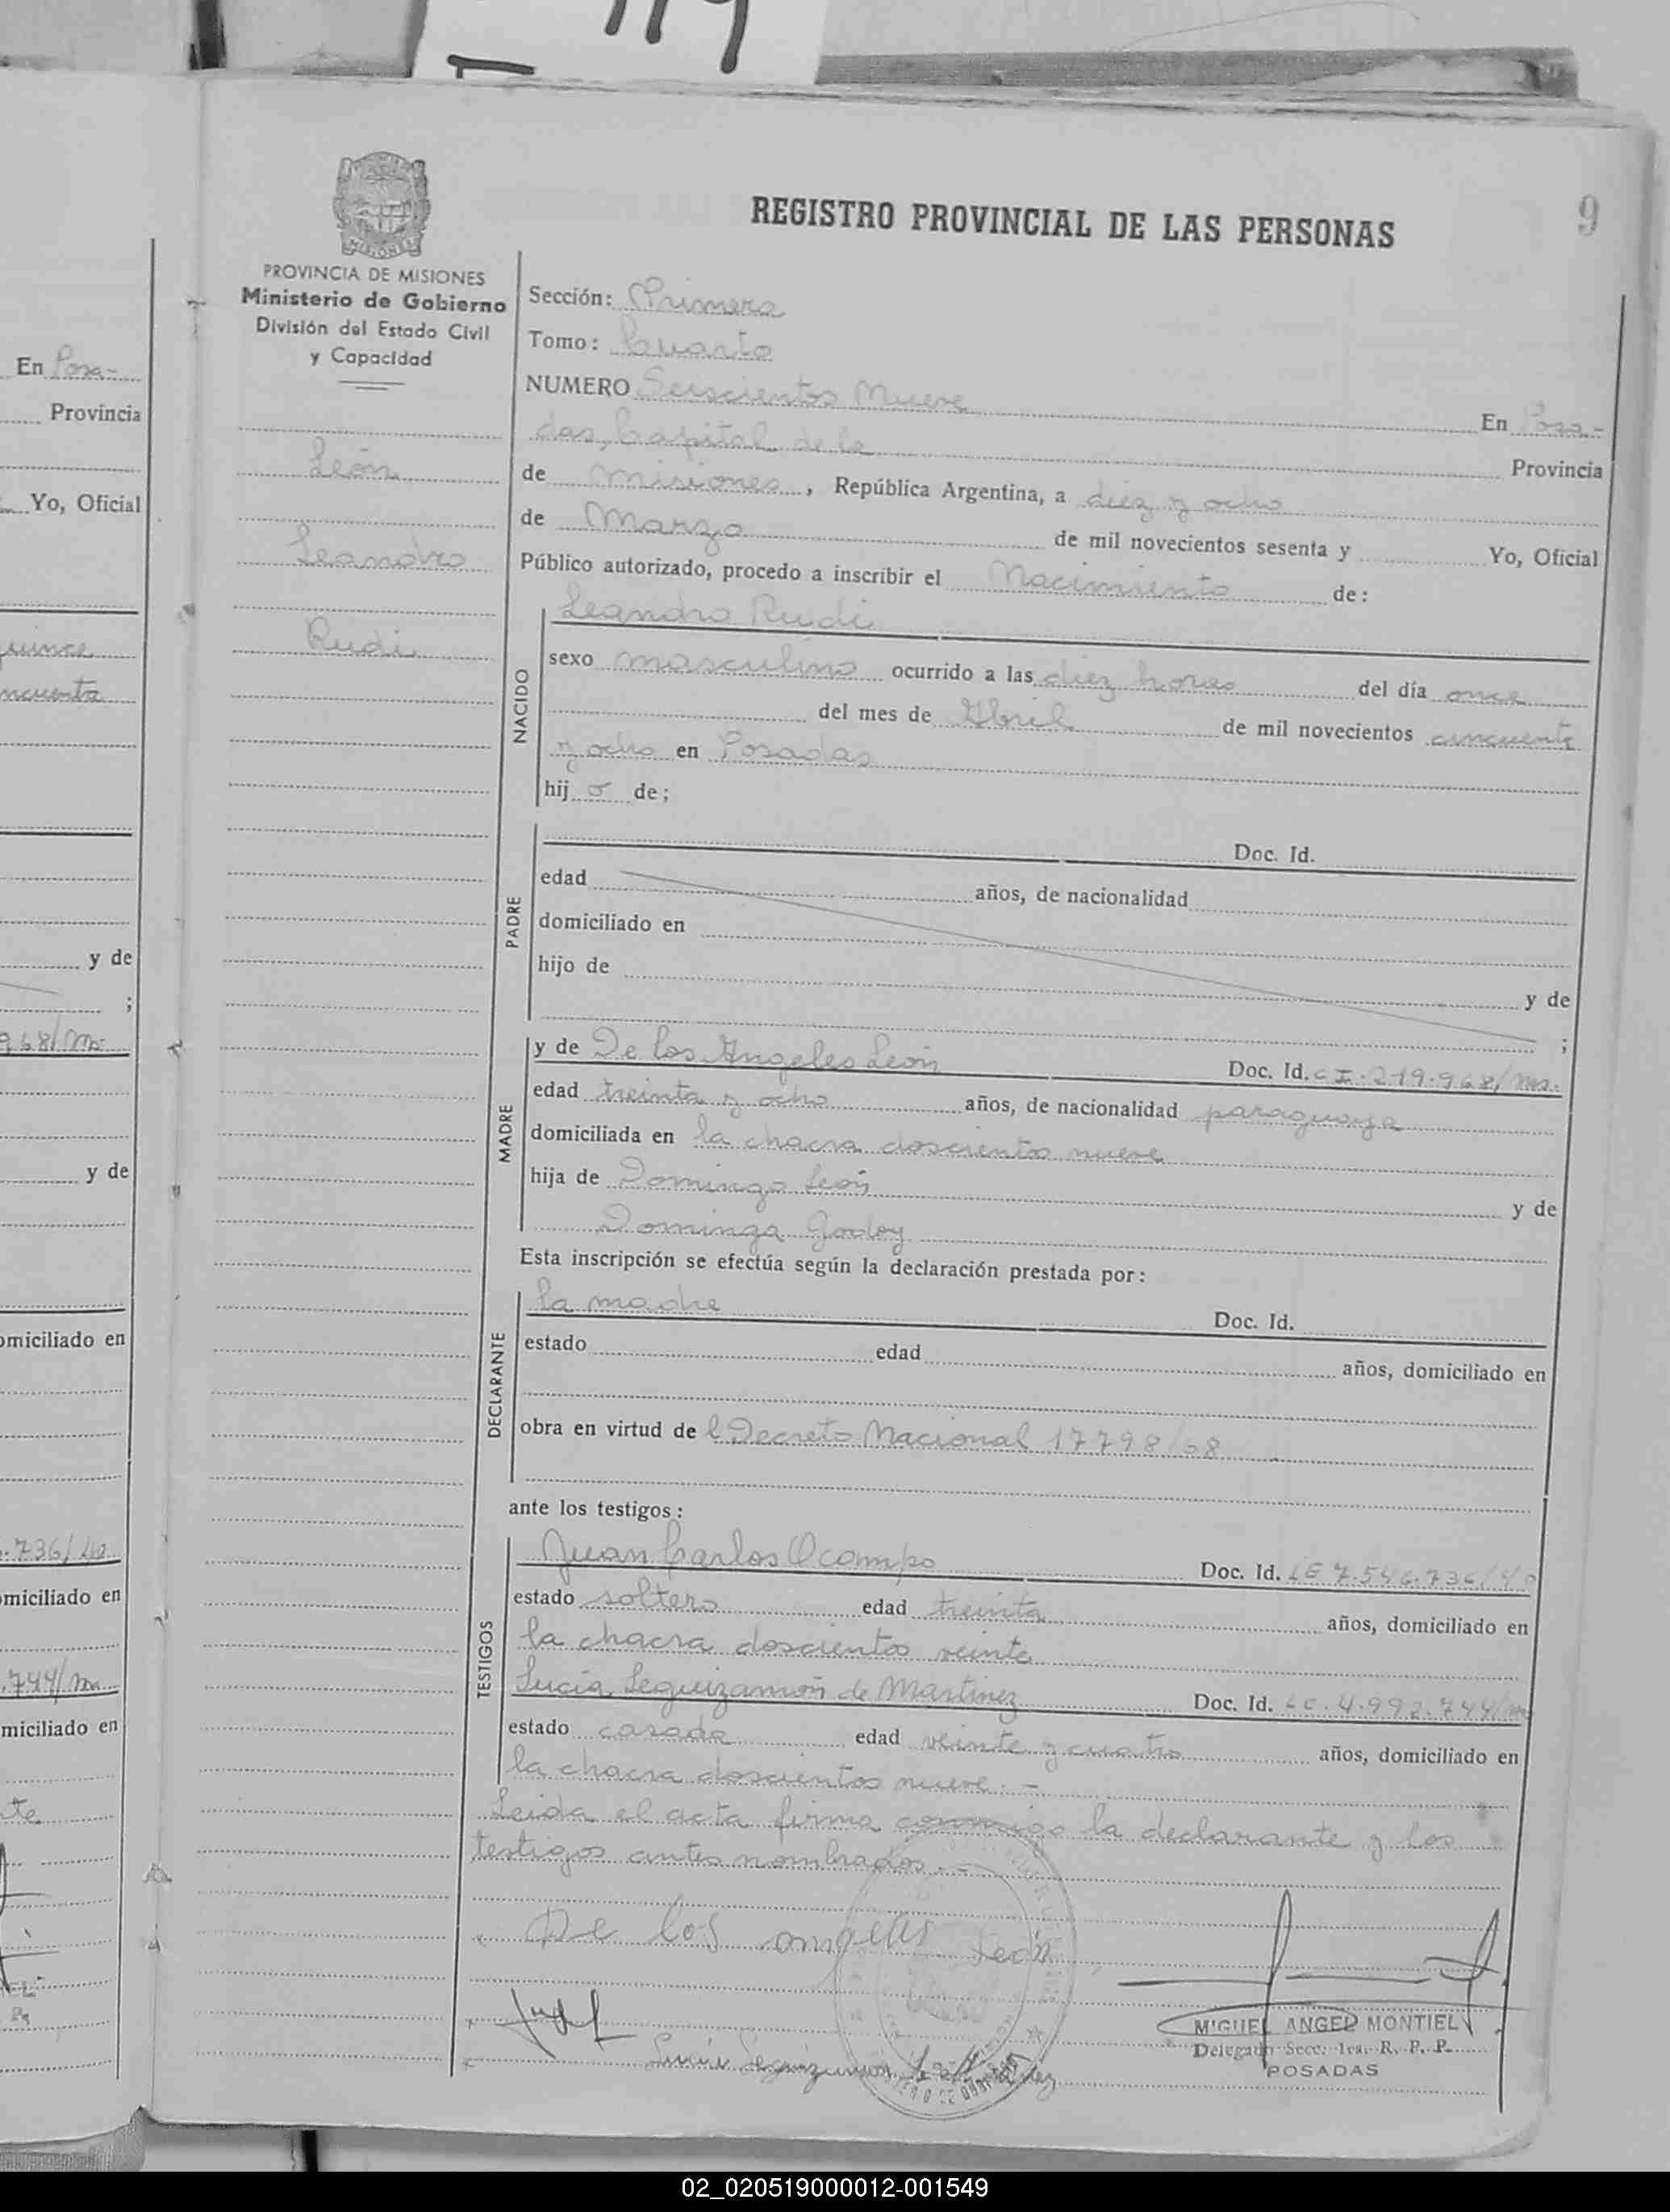 REGISTRO PROVINCIAL DE LAS PERSONAS
9
MISIONES
PROVINCIA DE MISIONES
Ministerio de Gobierno
División del Estado Civil
y Capacidad
León
Leandro
Rudi
Sección: Primera
Tomo: Cuarto
NUMERO Seiscientos Nueve En Posa-
das, Capital de la Provincia
de Misiones, República Argentina, a diez y ocho
de Marzo de mil novecientos sesenta y Yo, Oficial
Público autorizado, procedo a inscribir el Nacimiento de:
NACIDO
Leandro Rudi
sexo masculino ocurrido a las diez horas del día once
del mes de Abril de mil novecientos cincuenta
y ocho en Posadas
hijo de;
PADRE
Doc. Id.
edad años, de nacionalidad
domiciliado en
hijo de y de
;
MADRE
y de De los Angeles León Doc. Id. CI. 219.968/Ms.
edad treinta y ocho años, de nacionalidad paraguaya
domiciliada en la chacra doscientos nueve
hija de Domingo León y de
Dominga Godoy
Esta inscripción se efectúa según la declaración prestada por:
DECLARANTE
la madre Doc. Id.
estado edad años, domiciliado en
obra en virtud de l Decreto Nacional 17798/68
ante los testigos:
TESTIGOS
Juan Carlos Ocampo Doc. Id. LE 7.546.736/
estado soltero edad treinta años, domiciliado en
la chacra doscientos veinte
Lucía Leguizamón de Martinez Doc. Id. LC. 4.992.744/
estado casada edad veinte y cuatro años, domiciliado en
la chacra doscientos nueve. -
Leida el acta firma conmigo la declarante y los
testigos antes nombrados. -
De los angeles León
Lucia Leguizamón de Martinez
MIGUEL ANGEL MONTIEL
Delegado Secc. 1ra. R. P. P.
POSADAS
En Posa-
Provincia
Yo, Oficial
quince
y de
;
968/Ms
y de
omiciliado en
.736/
miciliado en
.744/
miciliado en
02_020519000012-001549